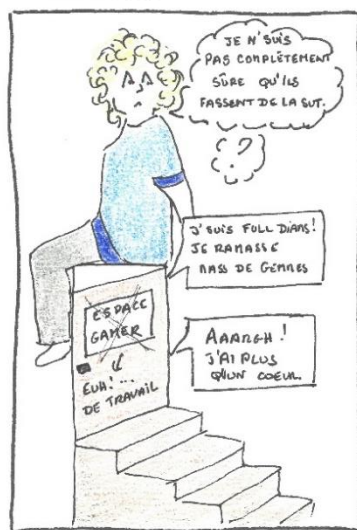 JE N'SUIS
PAS COMPLÈTEMENT
SÛRE QU'ILS
FASSENT DE LA SVT.
?
J'SUIS FULL DIAMS!
JE RAMASSE
MASS DE GEMMES
ESPACE
GAMER
EUH!...
DE TRAVAIL
AAARGH!
J'AI PLUS
QU'UN COEUR.